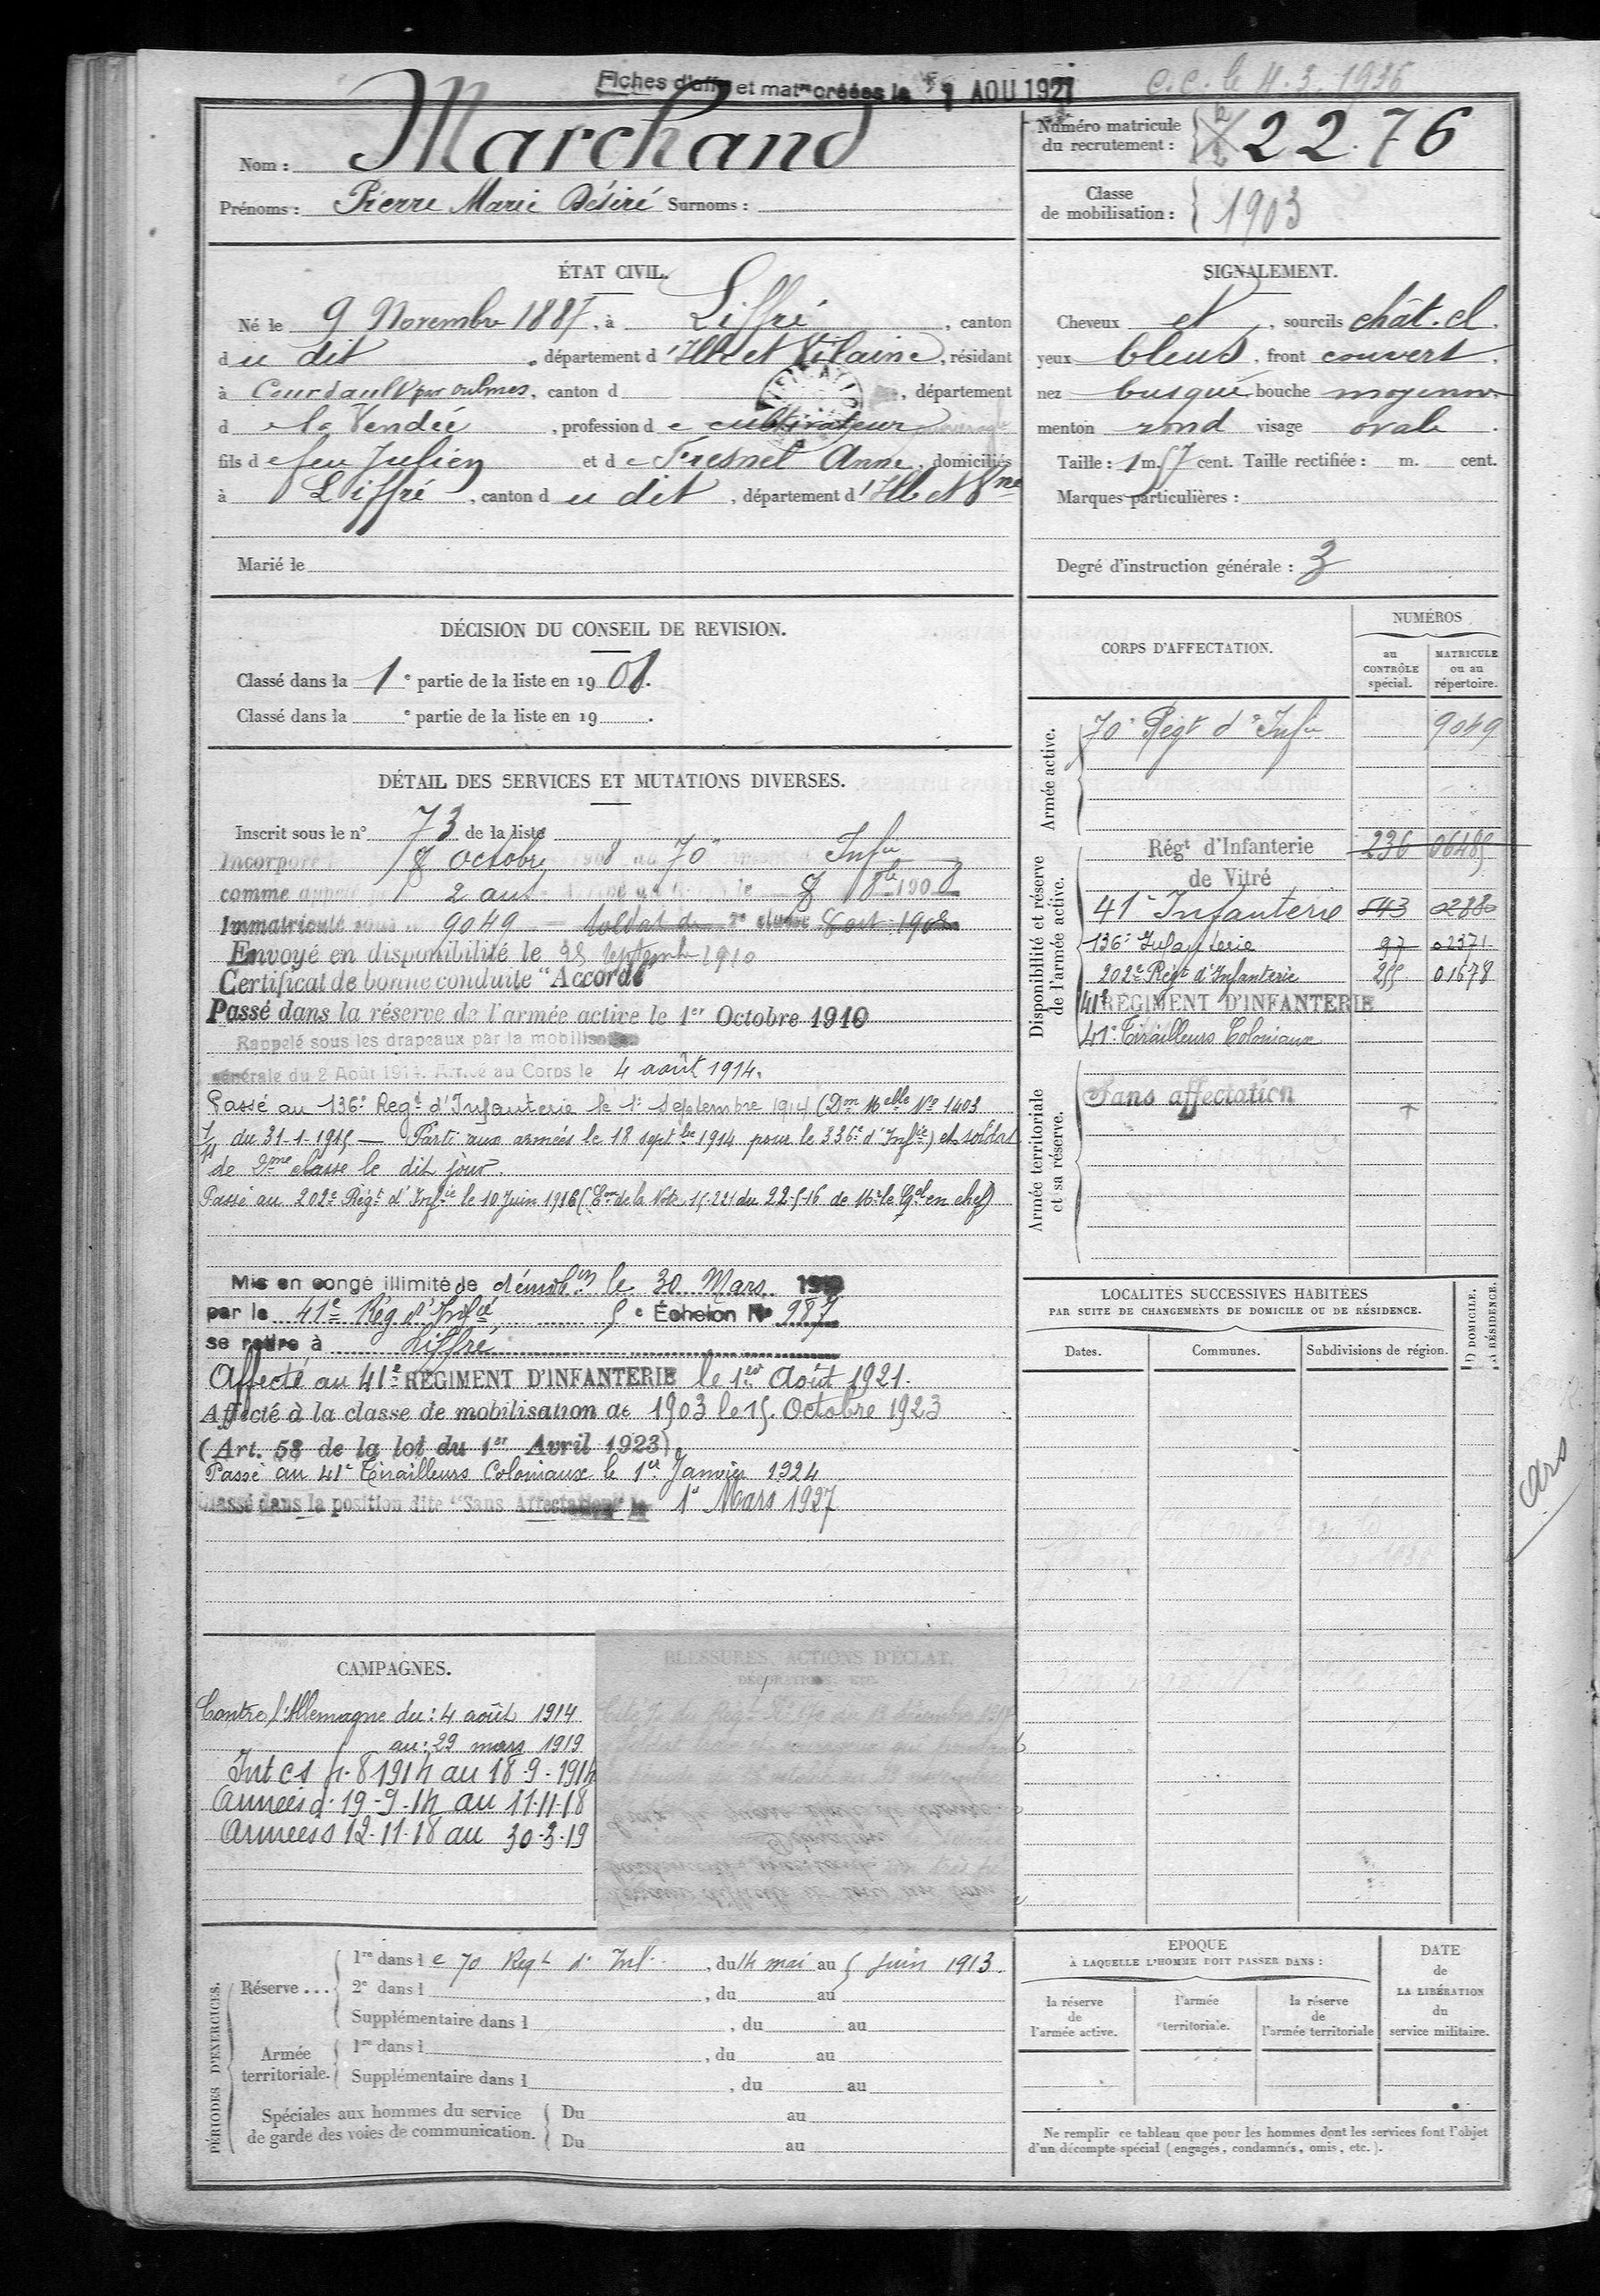 Fiches d'affon et matles créées le 1 AOU 1921
c.c. le 4.3.1936
Nom : Marchand
Prénoms : Pierre Marie Désiré Surnoms :
Numéro matricule du recrutement : 2276
Classe de mobilisation : 1903
ÉTAT CIVIL.
Né le 9 Novembre 1887, à Liffré, canton
du dit, département d'Ille et Vilaine, résidant
à Courdault par oulmes, canton d , département
d e la Vendée, profession de cultivateur
fils de feu Julien et de Fresnel Anne, domiciliés
à Liffré, canton du dit, département d'Ille et Vne
Marié le
SIGNALEMENT.
Cheveux et, sourcils chât. cl.
yeux bleus, front couvert,
nez busqué, bouche moyenne
menton rond visage ovale.
Taille : 1 m. 57 cent. Taille rectifiée : m. cent.
Marques particulières :
Degré d'instruction générale : 3
DÉCISION DU CONSEIL DE REVISION.
Classé dans la 1e partie de la liste en 1908.
Classé dans la e partie de la liste en 19 .
DÉTAIL DES SERVICES ET MUTATIONS DIVERSES.
Inscrit sous le n° 73 de la liste
Incorporé 8 octobre 1908 au 70e Infie
comme appelé 2 ans le 8 8bre 1908
Immatriculé sous 9049 Soldat de 2e classe 8 oct 1908
Envoyé en disponibilité le 25 Septembre 1910
Certificat de bonne conduite "Accordé"
Passé dans la réserve de l'armée active le 1er Octobre 1910
Rappelé sous les drapeaux par la mobilisation
générale du 2 Août 1914. Arrivé au Corps le 4 août 1914.
Passé au 136e Régt d'Infanterie le 1er Septembre 1914 (Don Melle No 1403
1/11 du 31-1-1915 — Parti aux armées le 18 septbre 1914 pour le 336e d'Infie) et soldat
de 2me classe le dit jour.
Passé au 202e Régt d'Infie le 10 Juin 1916 (Eon de la Note 15.221 du 22-5-16 de Mr le Gal en chef)
Mis en congé illimité de démobon le 30 Mars 1919
par le 41e Rég d'Infie 5e Échelon No 987
se retire à Liffré
Affecté au 41e RÉGIMENT D'INFANTERIE le 1er Août 1921.
Affecté à la classe de mobilisation de 1903 le 15 Octobre 1923
(Art. 58 de la loi du 1er Avril 1923)
Passé au 41e Tirailleurs Coloniaux le 1er Janvier 1924
Classé dans la position dite "Sans Affectation" le 1er Mars 1927
CORPS D'AFFECTATION.
NUMÉROS
au CONTRÔLE spécial.
MATRICULE ou au répertoire.
Armée active.
70e Régt d'Infie 9049
Disponibilité et réserve de l'armée active.
Régt d'Infanterie de Vitré 236 06485
41e Infanterie 543 0288
136e Infanterie 97 02371
202e Régt d'Infanterie 255 01678
41e RÉGIMENT D'INFANTERIE
41e Tirailleurs Coloniaux
Armée territoriale et sa réserve.
Sans affectation
LOCALITÉS SUCCESSIVES HABITÉES
PAR SUITE DE CHANGEMENTS DE DOMICILE OU DE RÉSIDENCE.
Dates. Communes. Subdivisions de région. D DOMICILE. R RÉSIDENCE.
Ars
CAMPAGNES.
Contre l'Allemagne du : 4 août 1914
au : 29 mars 1919
Int cs 4.8 1914 au 18-9-1914
Armées d. 19-9-14 au 11-11-18
Armées s 12-11-18 au 30-3-19
BLESSURES, ACTIONS D'ÉCLAT,
DÉCORATIONS, ETC.
PÉRIODES D'EXERCICES.
Réserve ... 1re dans le 70 Régt d'Inf., du 14 mai au 5 juin 1913.
2e dans l , du au
Supplémentaire dans l , du au
Armée territoriale. 1re dans l , du au
Supplémentaire dans l , du au
Spéciales aux hommes du service de garde des voies de communication. Du au
Du au
EPOQUE
À LAQUELLE L'HOMME DOIT PASSER DANS :
la réserve de l'armée active.
l'armée territoriale.
la réserve de l'armée territoriale
DATE de LA LIBÉRATION du service militaire.
Ne remplir ce tableau que pour les hommes dont les services font l'objet
d'un décompte spécial (engagés, condamnés, omis, etc.).